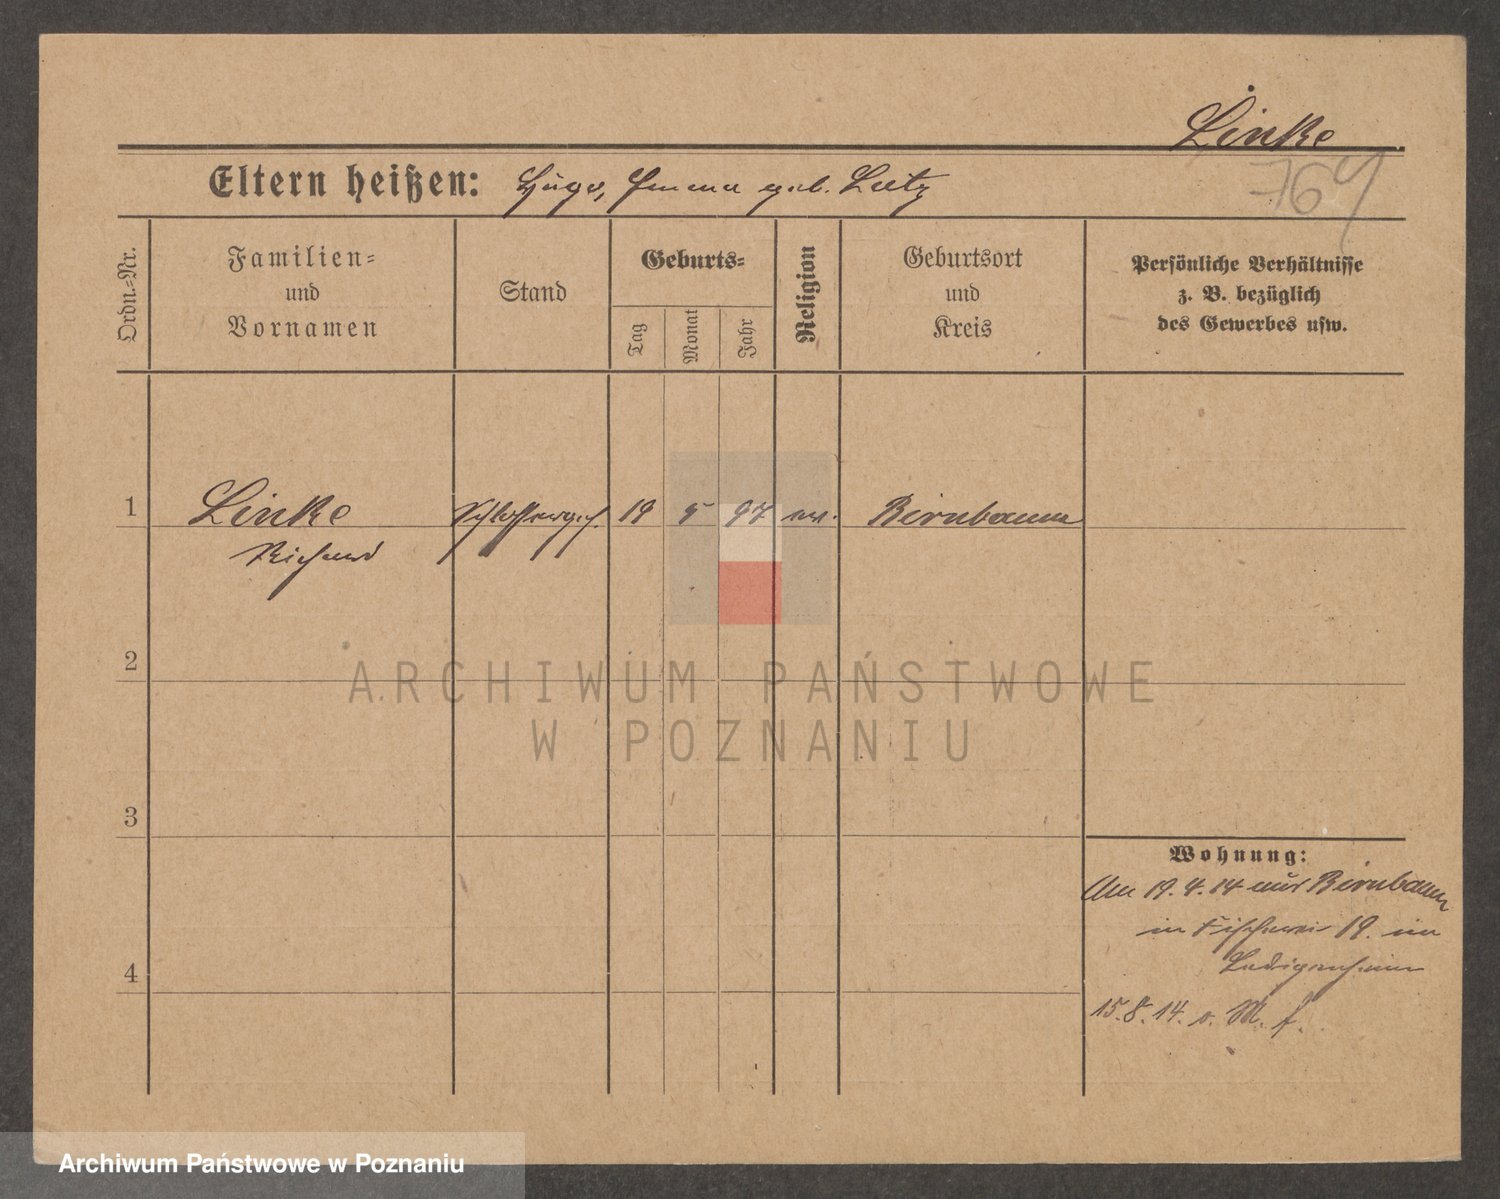 Linke
764
Eltern heißen: Hugo, Emma geb. Lutz
Ordn.-Nr.
Familien-
und
Vornamen
Stand
Geburts-
Tag
Monat
Jahr
Religion
Geburtsort
und
Kreis
Persönliche Verhältnisse
z. B. bezüglich
des Gewerbes usw.
1 Linke Schlosserges. 19 5 97 ev. Birnbaum
Richard
2
3
4
Wohnung:
Am 19.4.14 aus Birnbaum
in Fischerei 19. im
Ledigenheim
15.8.14. v. M. f.
ARCHIWUM PAŃSTWOWE
W POZNANIU
Archiwum Państwowe w Poznaniu